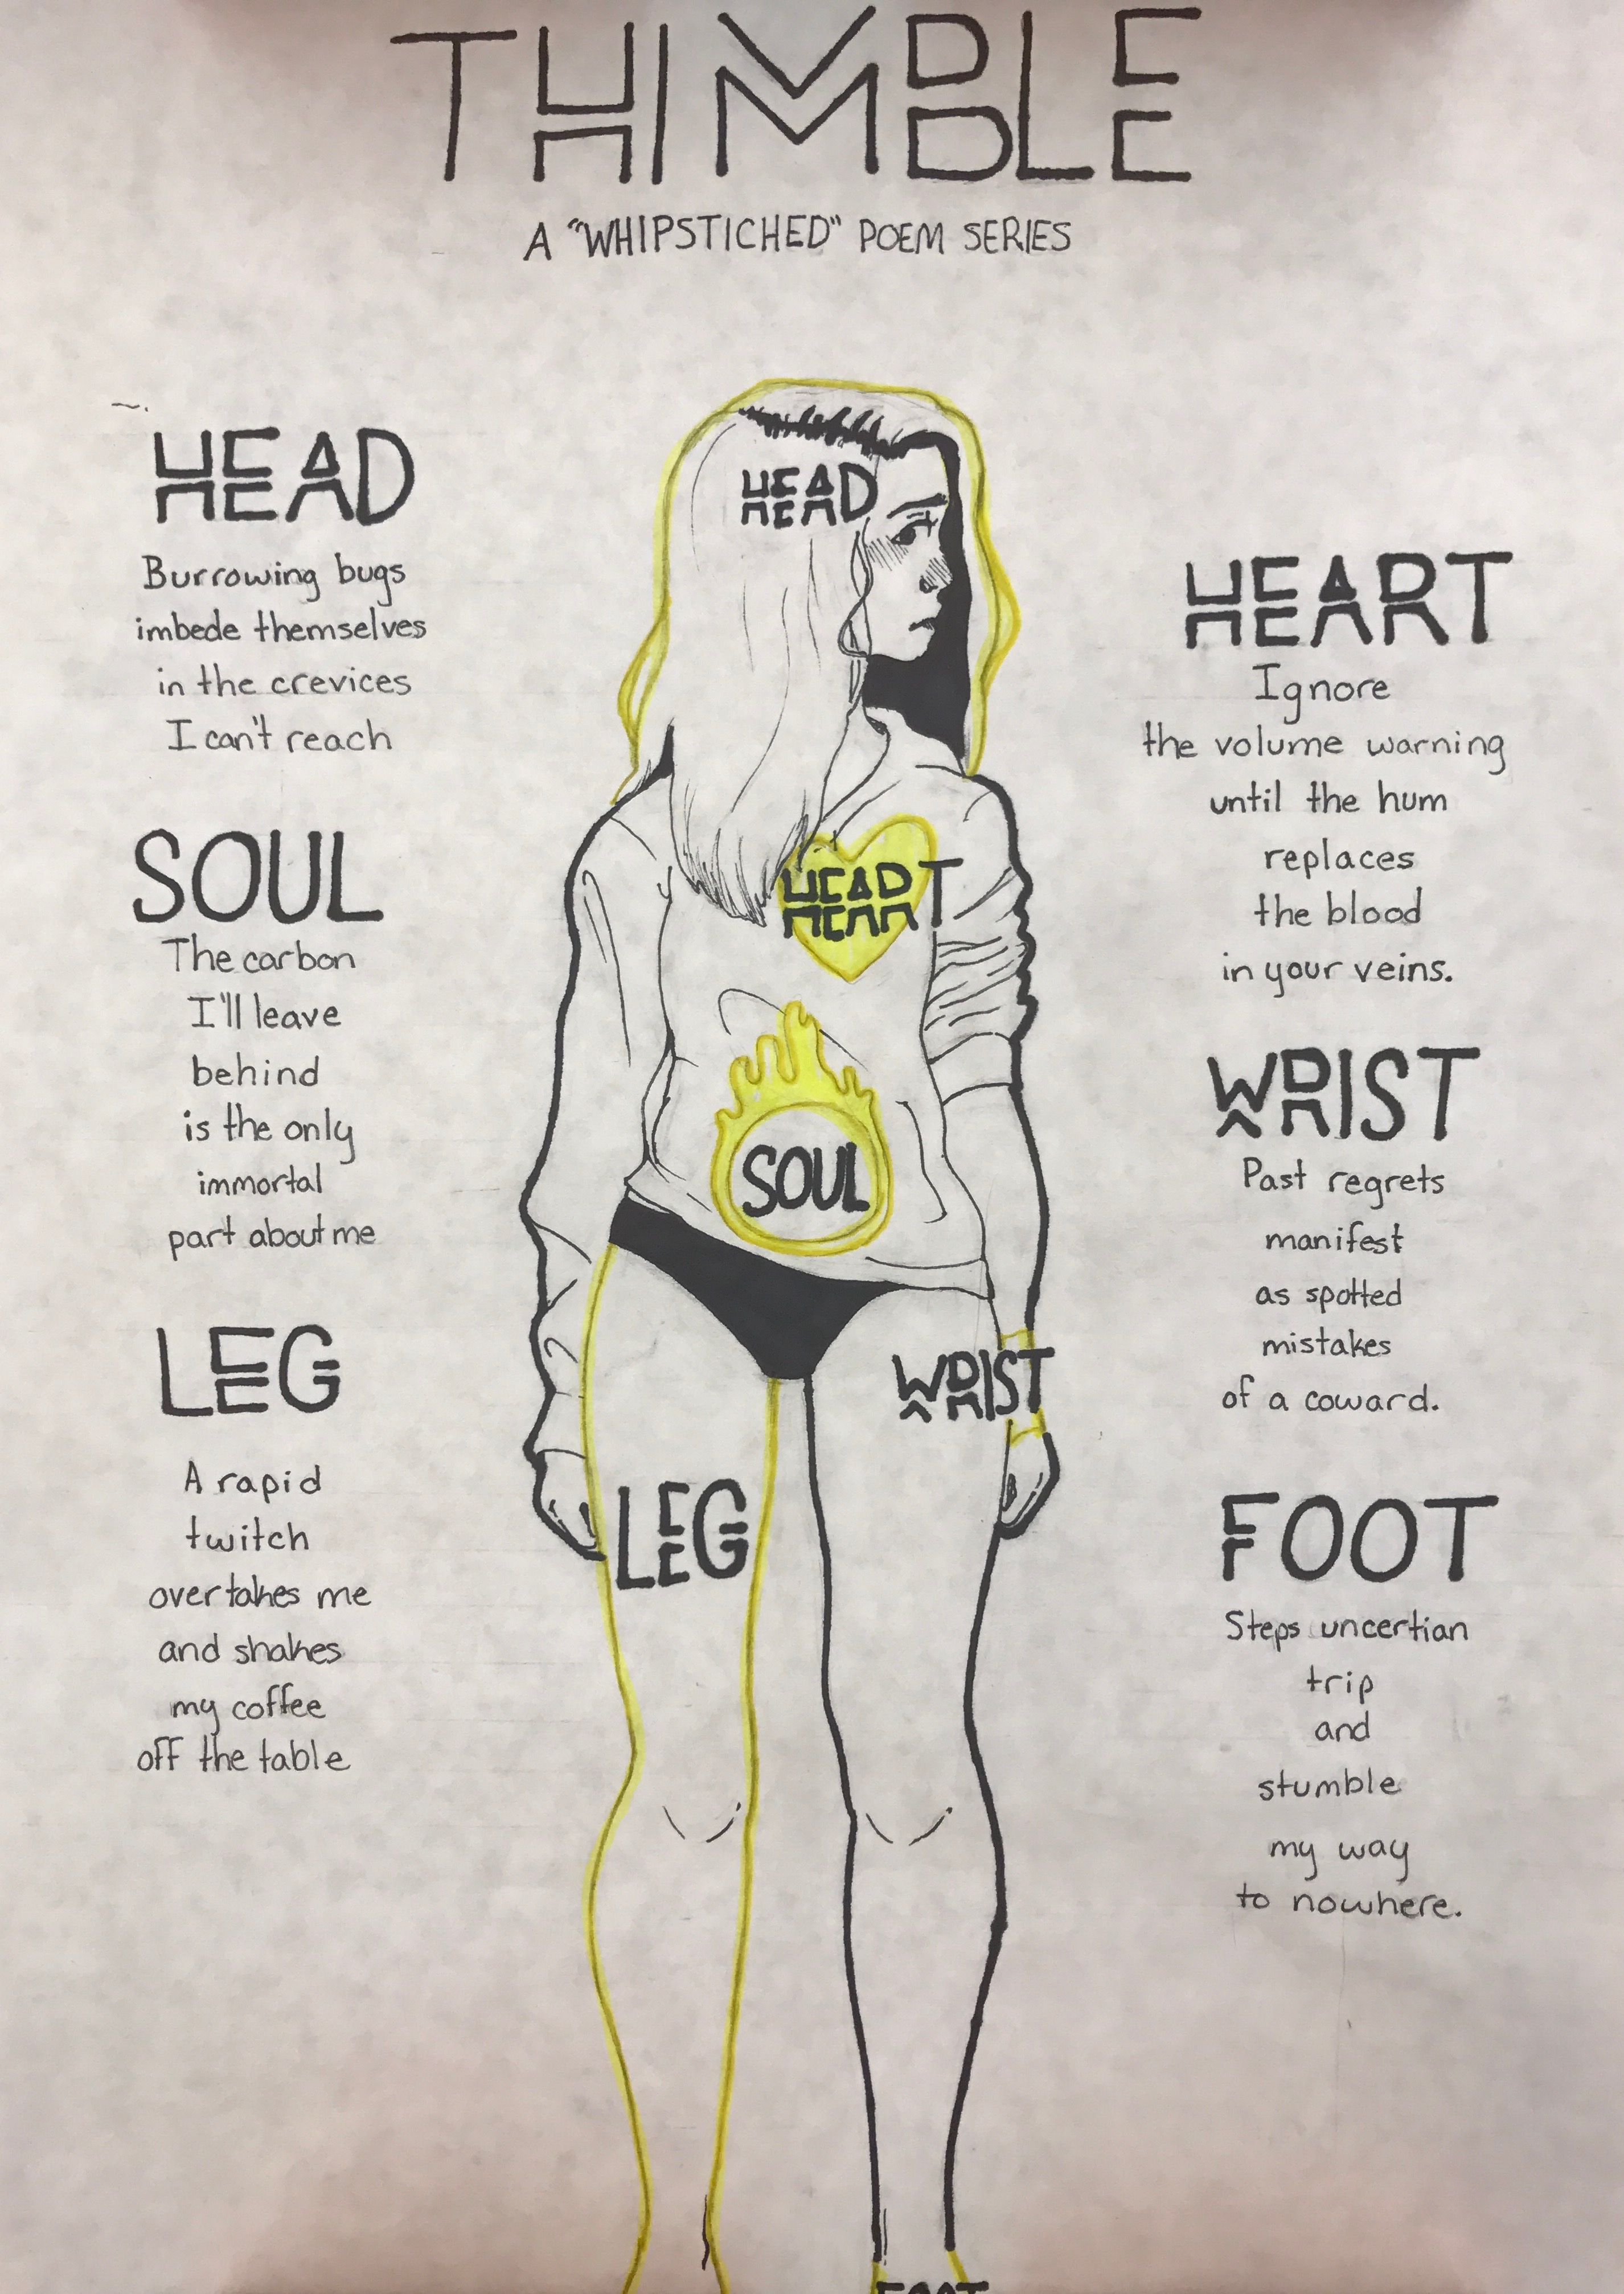 THIMBLE
A "WHIPSTICHED" POEM SERIES
HEAD
Burrowing bugs
imbede themselves
in the crevices
I can't reach
SOUL
The carbon
I'll leave
behind
is the only
immortal
part about me
LEG
A rapid
twitch
overtakes me
and shakes
my coffee
off the table
HEAD
HEART
SOUL
WRIST
LEG
FOOT
HEART
Ignore
the volume warning
until the hum
replaces
the blood
in your veins.
WRIST
Past regrets
manifest
as spotted
mistakes
of a coward.
FOOT
Steps uncertian
trip
and
stumble
my way
to nowhere.